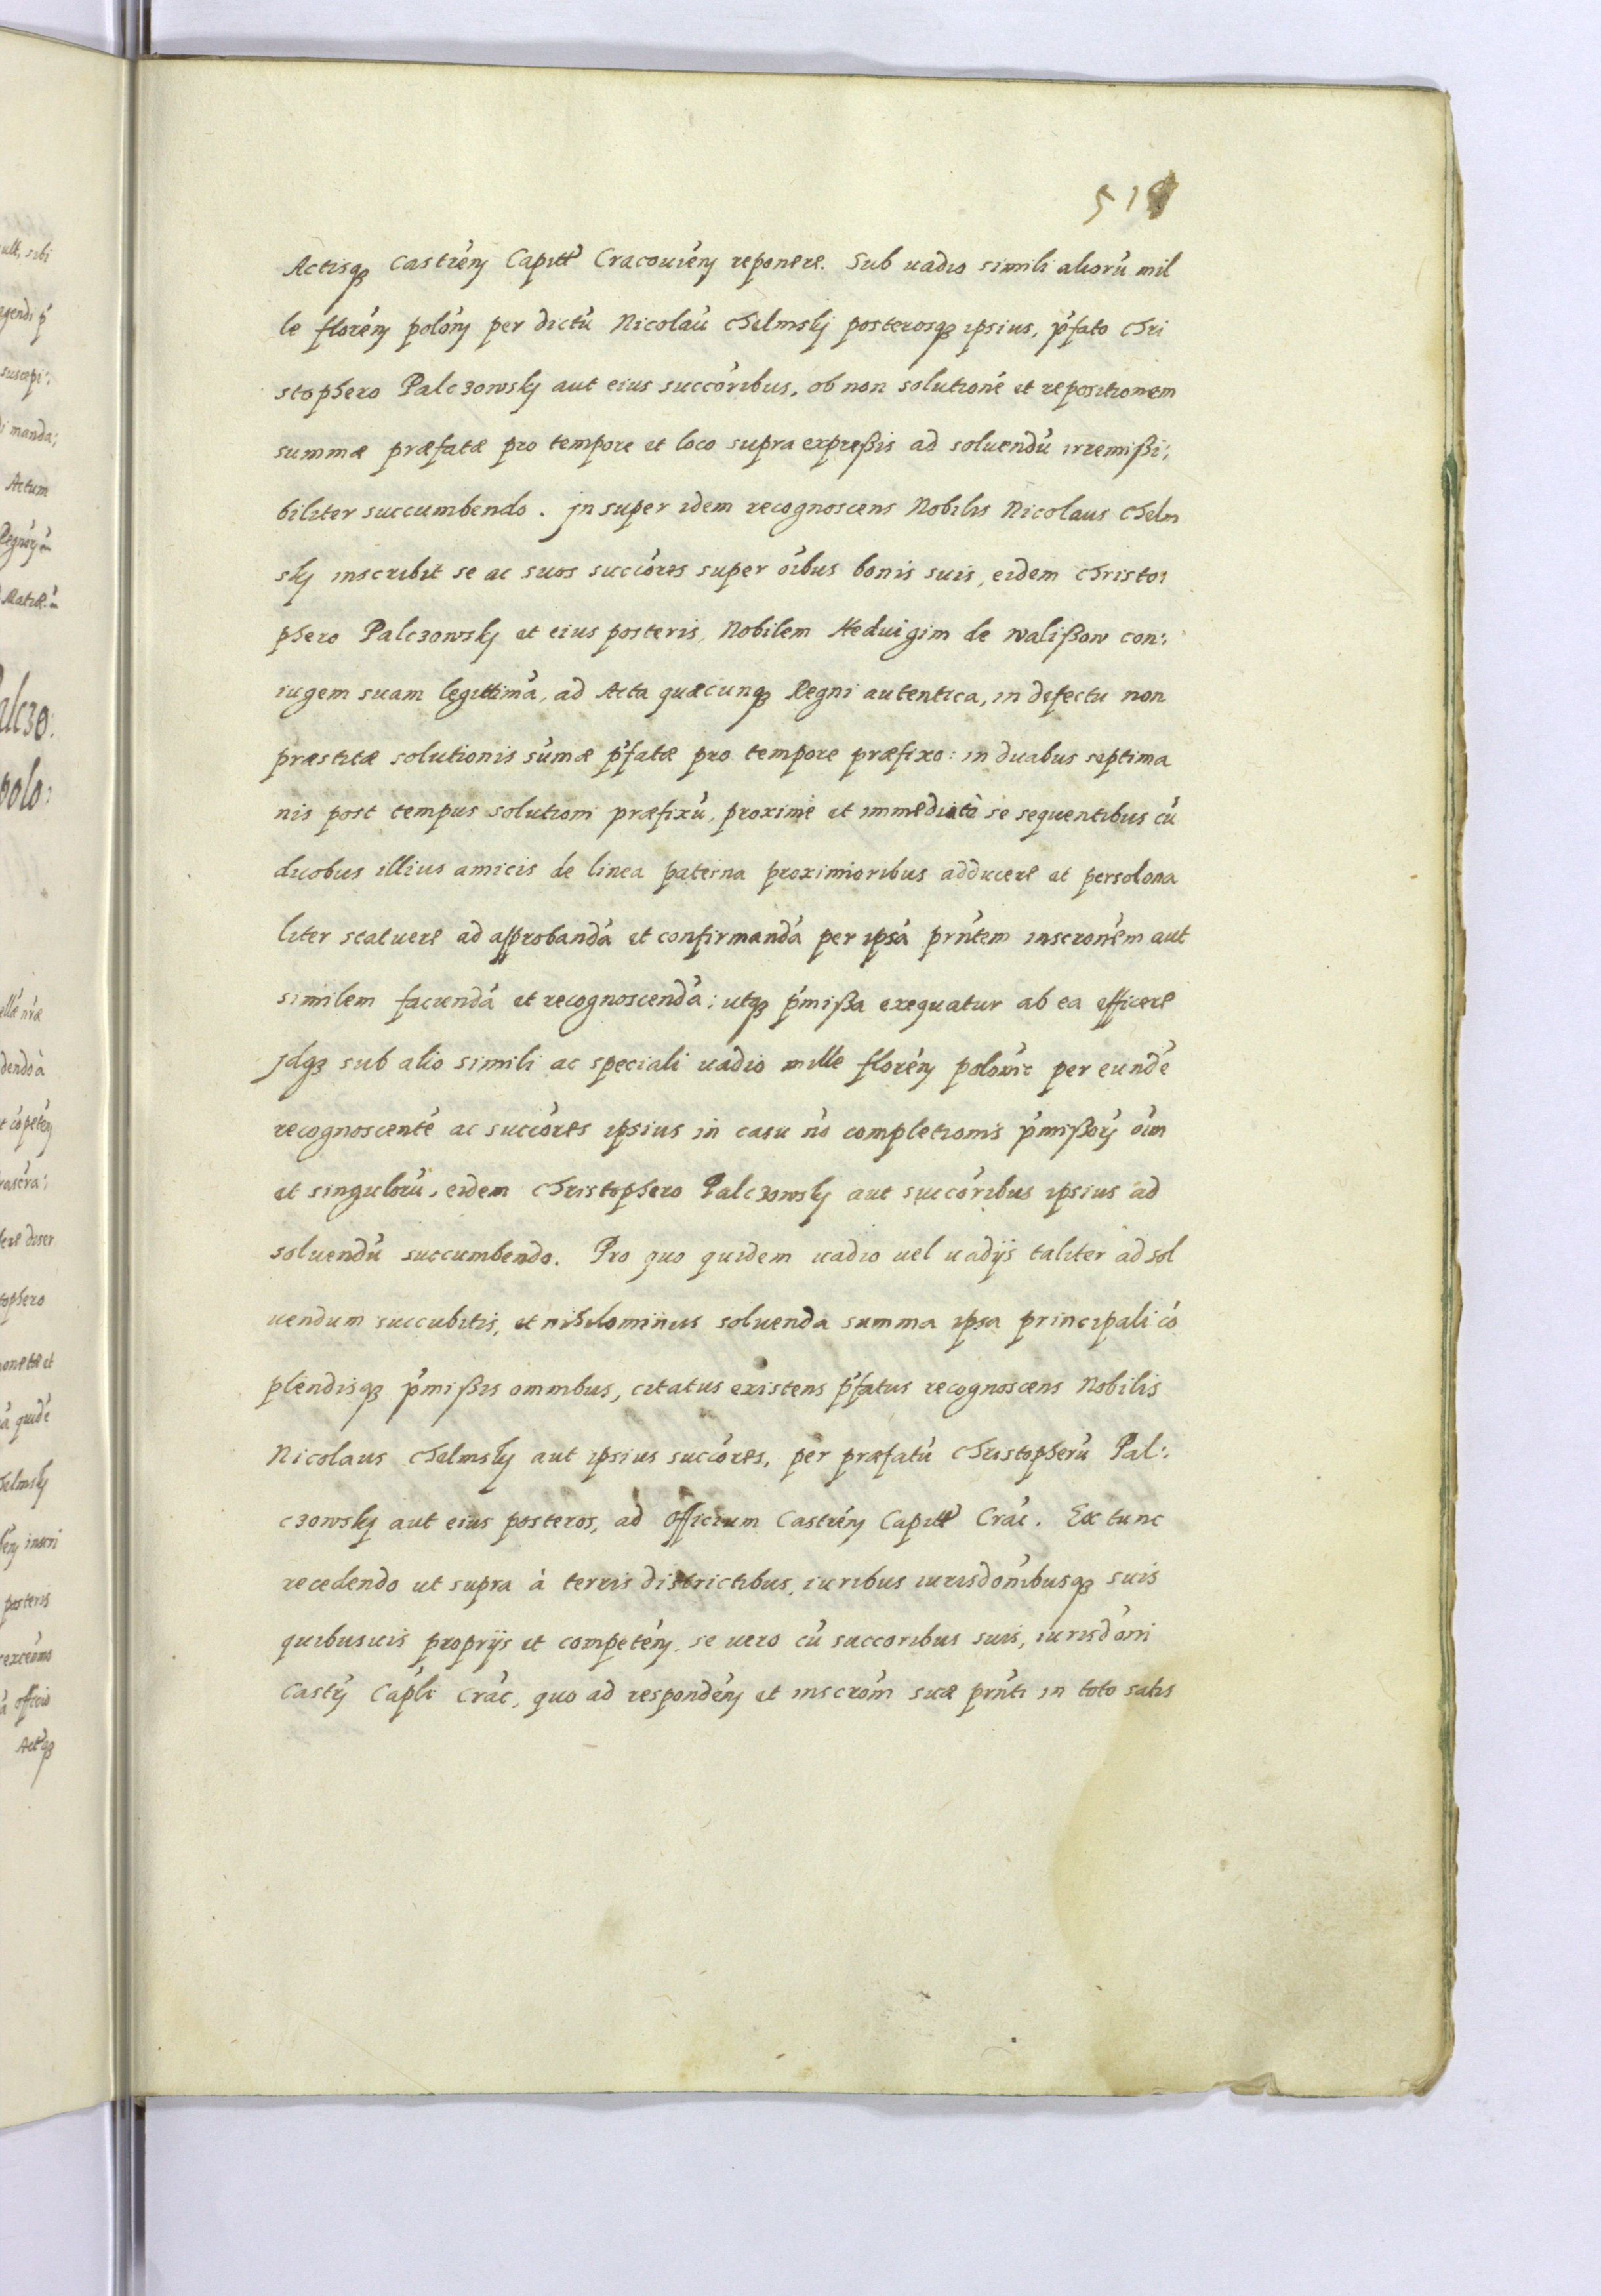 519
Actisq₃ Castren̄ Capitł Cracouień reponere. Sub uadio simili aliorū mil
le floreń poloń per dictū Nicolaū Chelmskij posterosq₃ ipsius, p̄fato Chri
stophero Palczowskij aut eius succōribus, ob non solutionē et repositionem
summæ præfatæ pro tempore et loco supra expreßis ad soluendū irremißi:
biliter succumbendo. Jnsuper idem recognoscens Nobilis Nicolaus Chelm
skij inscribit se ac suos succōres super ōibus bonis suis, eidem Christo:
phero Palczowskij et eius posteris, Nobilem Heduigim de Walißow con:
iugem suam legittimā, ad Acta quæcunq₃ Regni autentica, in defectu non
præstitæ solutionis sūmæ p̄fatæ pro tempore præfixo: in duabus septima
nis post tempus solutioni præfixū, proximè et immediatè se sequentibus cū
duobus illius amicis de linea paterna proximioribus adducere et persolona
liter statuere ad approbandā et confirmandā per ipsā prn̄tem inscronēm aut
similem faciendā et recognoscendā; utq₃ p̄mißa exequatur ab ea efficere
Jdq₃ sub alio simili ac speciali uadio mille floreń polonic per eundē
recognoscentē ac succōres ipsius in casu nō completionis p̄mißoꝝ oīm
et singulorū, eidem Christophero Palczowskij aut succōribus ipsius ad
soluendū succumbendo. Pro quo quidem uadio uel uadijs taliter ad sol
uendum succubitis, et nihilominus soluenda summa ipsa principali cō
plendisq₃ p̄mißis omnibus, citatus existens p̄fatus recognoscens Nobilis
Nicolaus Chelmskij aut ipsius succōres, per præfatū Christopherū Pal:
czowskij aut eius posteros, ad Officium Castreń Capitł Crać. Ex tunc
recedendo ut supra à terris districtibus, iuribus iurisdōnibusq₃ suis
quibusuis proprijs et competeń, se uero cū succoribus suis, iurisdōni
Castŕ Caplī Crać, quo ad respondeń et inscrōni suæ prn̄ti in toto satis